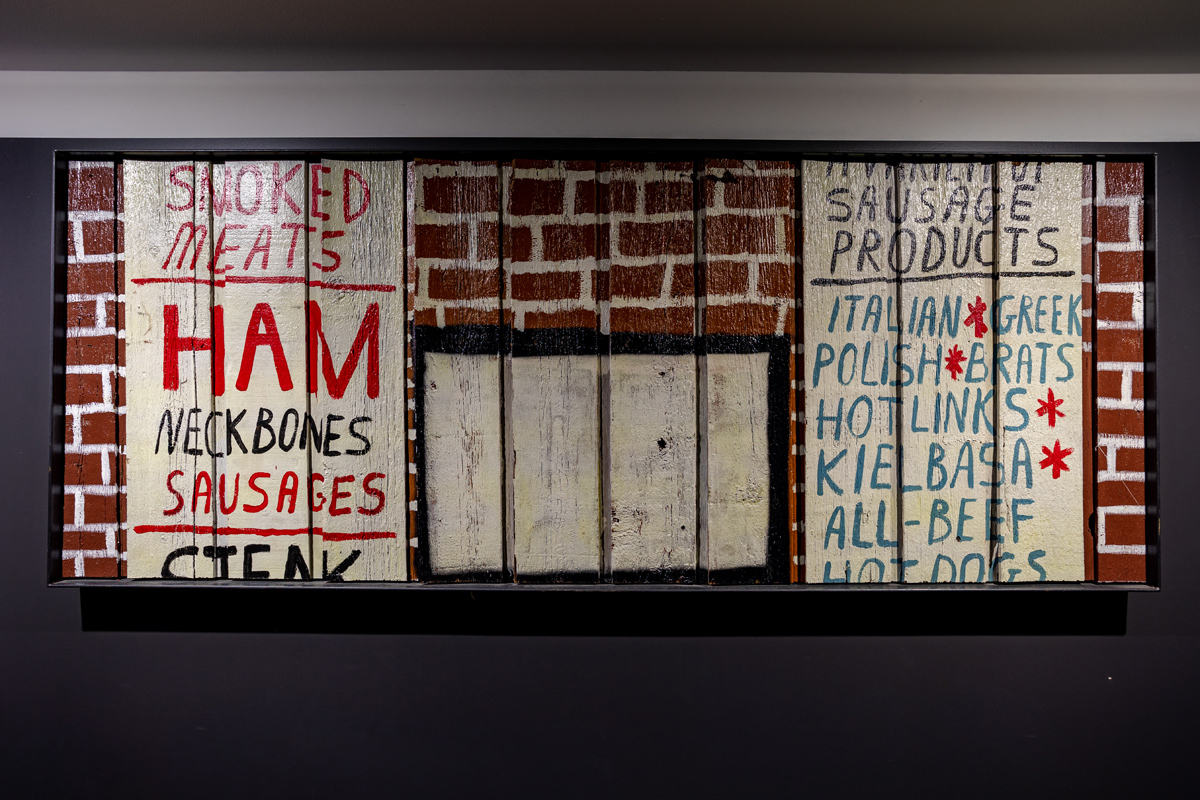 SMOKED
MEATS
HAM
NECKBONES
SAUSAGES
STEAK
A VARIETY OF
SAUSAGE
PRODUCTS
ITALIAN * GREEK
POLISH * BRATS
HOT LINKS *
KIELBASA *
ALL-BEEF
HOT DOGS